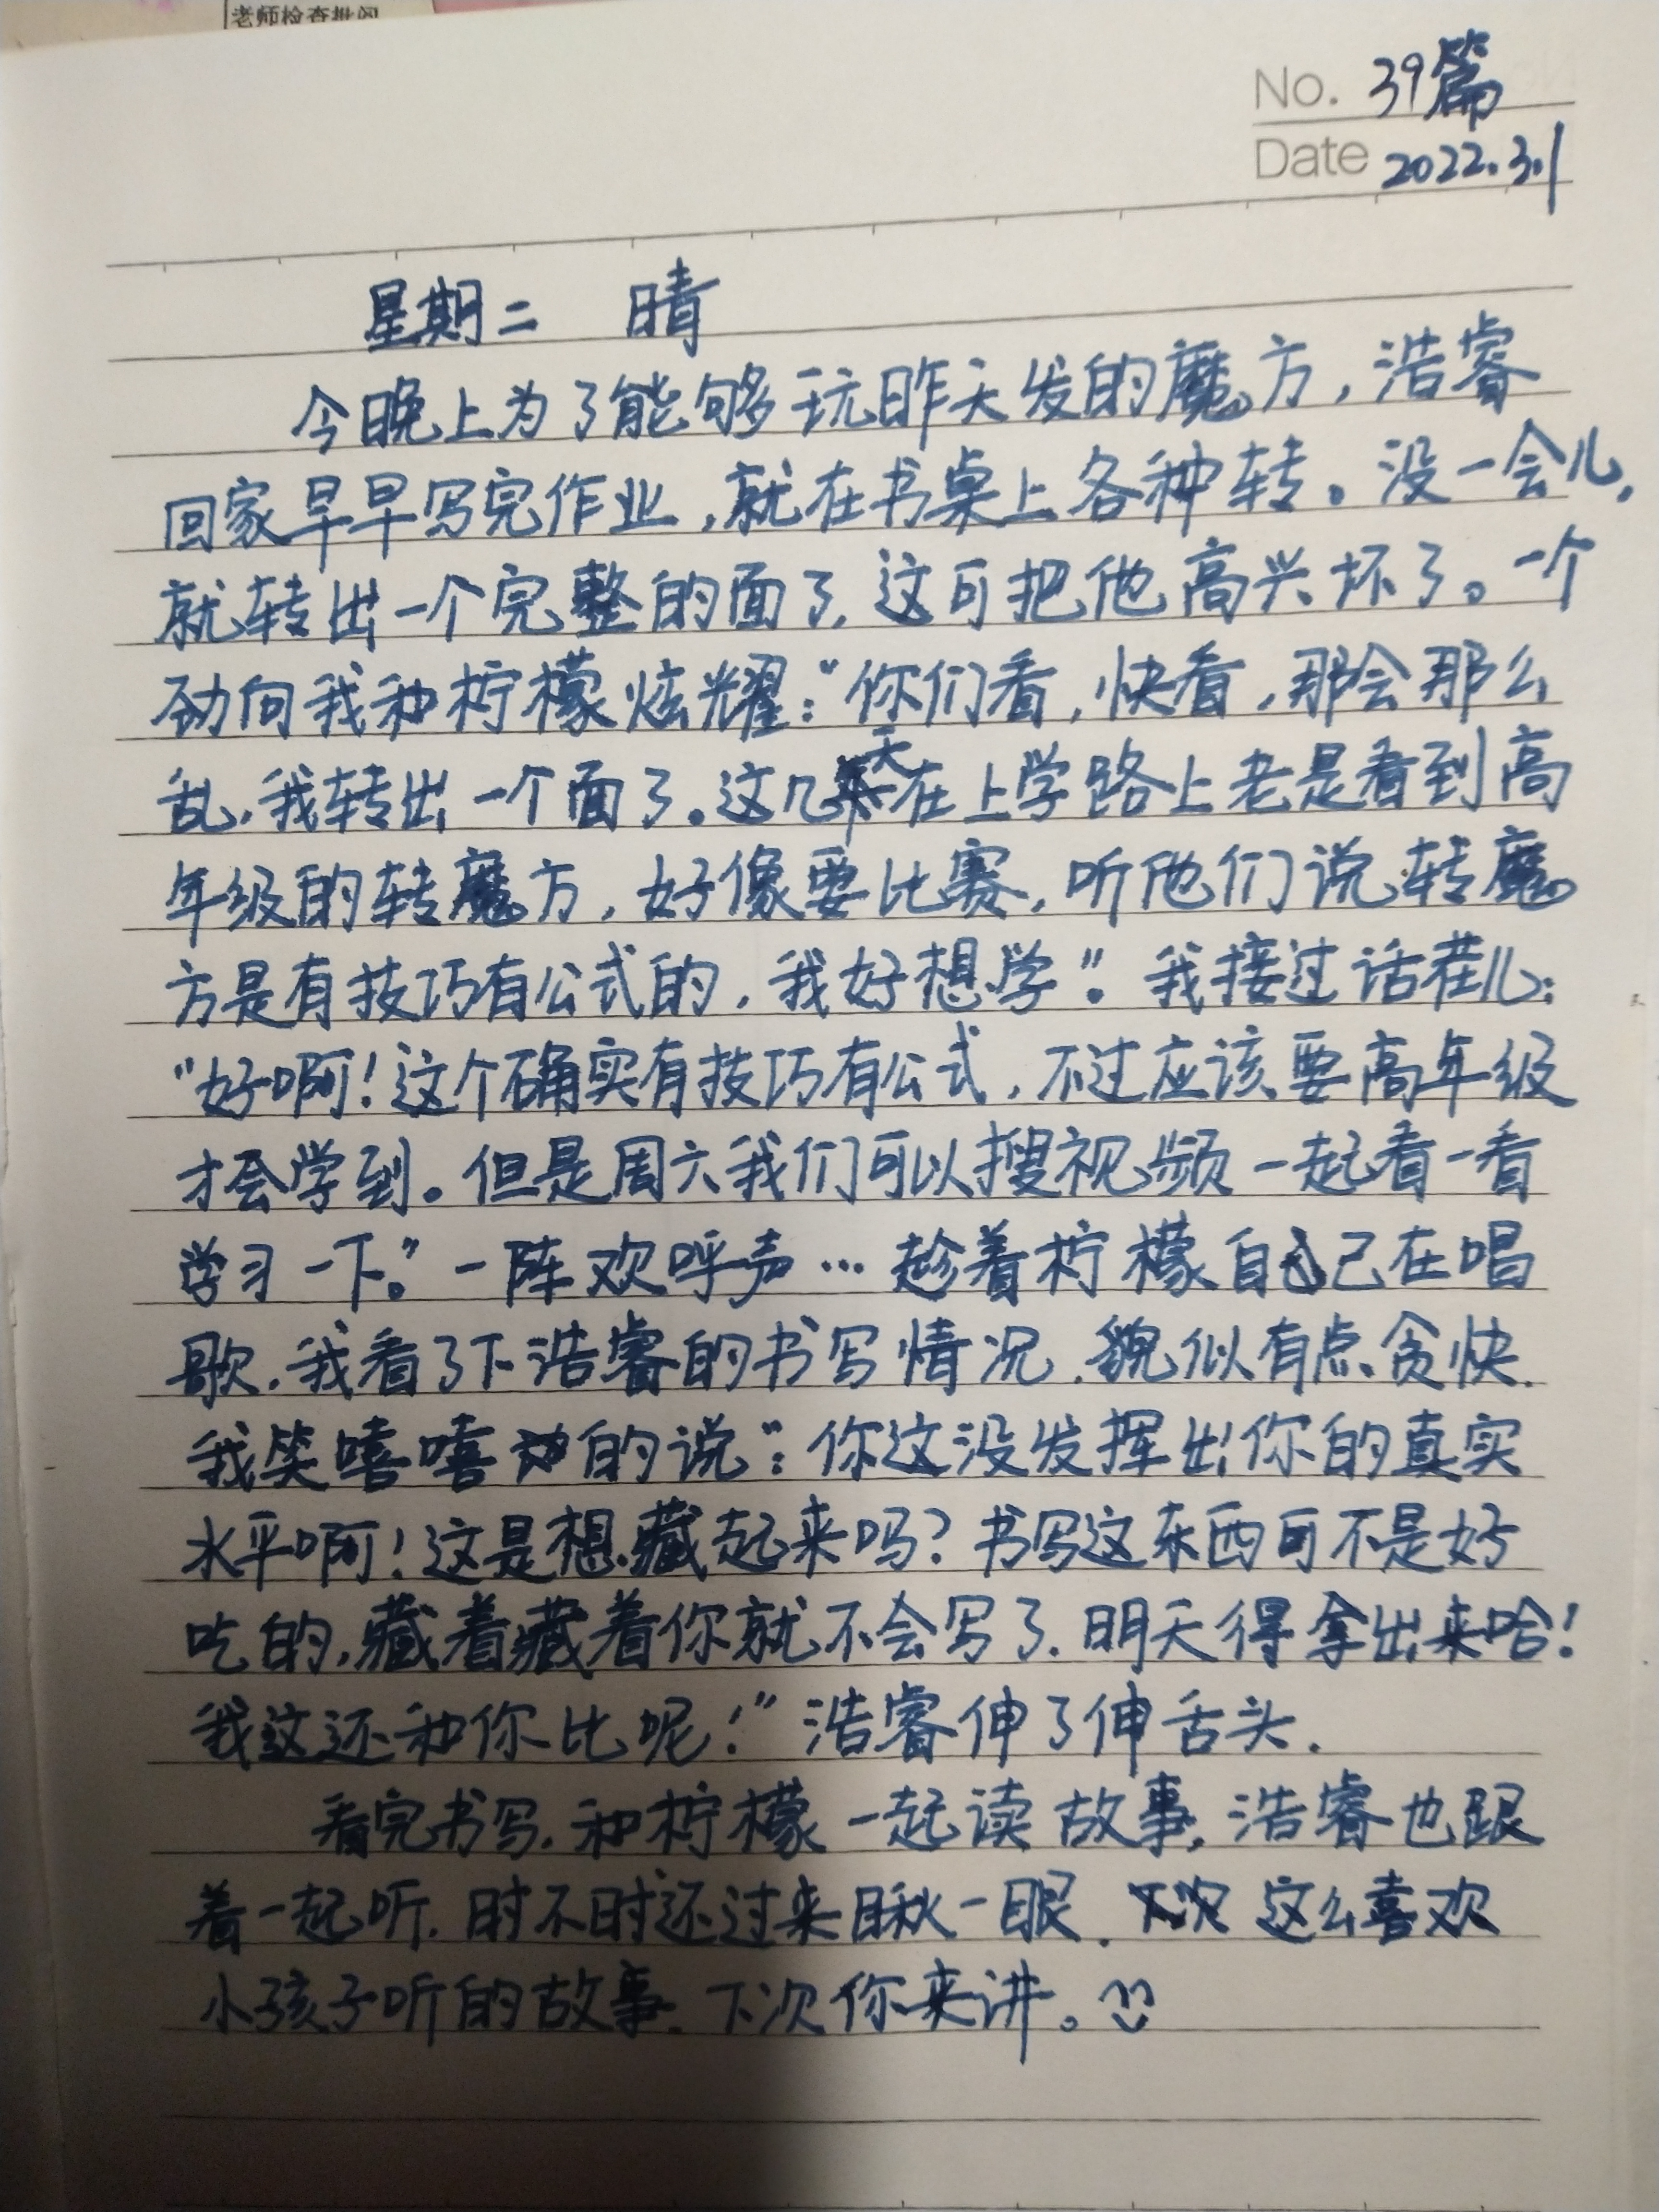 老师检查批阅
No. 39篇
Date 2022.3.1
星期二 晴
今晚上为了能够玩昨天发的魔方，浩睿
回家早早写完作业，就在书桌上各种转。没一会儿，
就转出一个完整的面了，这可把他高兴坏了。一个
劲向我和柠檬炫耀：“你们看，快看，那会那么
乱，我转出一个面了。这几天在上学路上老是看到高
年级的转魔方，好像要比赛，听他们说转魔
方是有技巧有公式的，我好想学”。我接过话茬儿：
“好啊！这个确实有技巧有公式，不过应该要高年级
才会学到。但是周六我们可以搜视频一起看一看
学习一下。”一阵欢呼声…趁着柠檬自己在唱
歌，我看了下浩睿的书写情况，貌似有点贪快.
我笑嘻嘻的说“：你这没发挥出你的真实
水平啊！这是想藏起来吗？书写这东西可不是好
吃的，藏着藏着你就不会写了，明天得拿出来哈！
我这还和你比呢！”浩睿伸了伸舌头.
看完书写，和柠檬一起读故事，浩睿也跟
着一起听，时不时还过来瞅一眼. 这么喜欢
小孩子听的故事，下次你来讲。